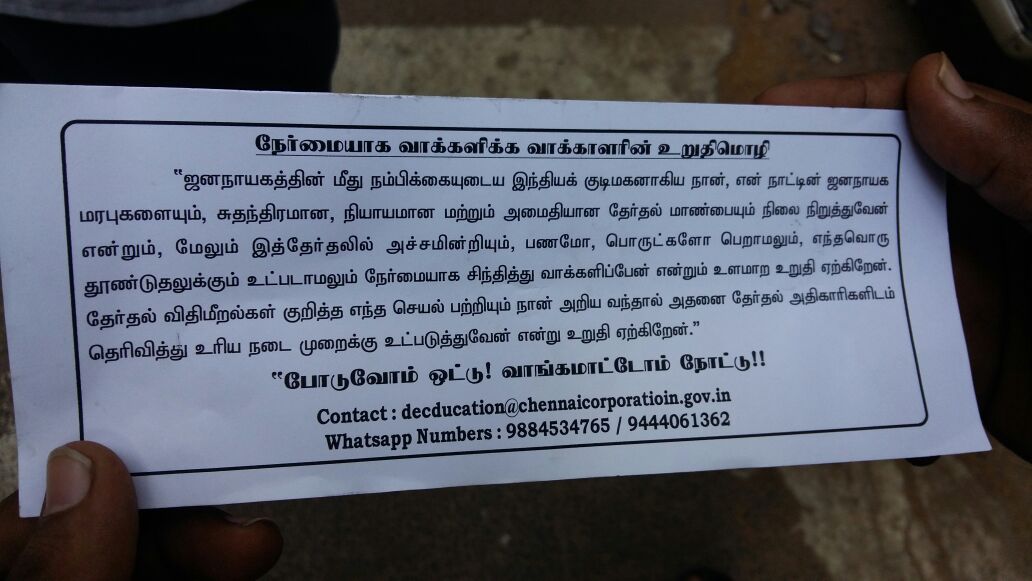 நேர்மையாக வாக்களிக்க வாக்காளரின் உறுதிமொழி
“ஜனநாயகத்தின் மீது நம்பிக்கையுடைய இந்தியக் குடிமகனாகிய நான், என் நாட்டின் ஜனநாயக
மரபுகளையும், சுதந்திரமான, நியாயமான மற்றும் அமைதியான தேர்தல் மாண்பையும் நிலை நிறுத்துவேன்
என்றும், மேலும் இத்தேர்தலில் அச்சமின்றியும், பணமோ, பொருட்களோ பெறாமலும், எந்தவொரு
தூண்டுதலுக்கும் உட்படாமலும் நேர்மையாக சிந்தித்து வாக்களிப்பேன் என்றும் உளமாற உறுதி ஏற்கிறேன்.
தேர்தல் விதிமீறல்கள் குறித்த எந்த செயல் பற்றியும் நான் அறிய வந்தால் அதனை தேர்தல் அதிகாரிகளிடம்
தெரிவித்து உரிய நடை முறைக்கு உட்படுத்துவேன் என்று உறுதி ஏற்கிறேன்.”
“போடுவோம் ஓட்டு! வாங்கமாட்டோம் நோட்டு!!
Contact : decducation@chennaicorporatioin.gov.in
Whatsapp Numbers : 9884534765 / 9444061362